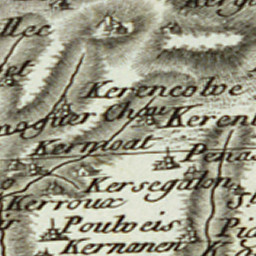 llec
Kerg
et
Kerencolve
naguer Chau
Keren
Kermoat
Penas
Kersegalon
Kerroux
St
Poulveis
Pi
Kernanen
K